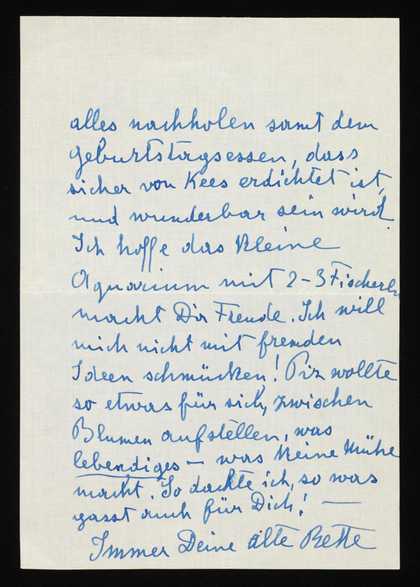 alles nachholen samt dem
Geburtstagsessen, dass
sicher von Kees erdichtet ist,
und wunderbar sein wird
Ich hoffe das kleine
Aquarium mit 2-3 Fischerln
macht Dir Freude. Ich will
mich nicht mit fremden
Ideen schmücken! Piz wollte
so etwas für sich, zwischen
Blumen aufstellen, was
lebendiges – was keine Mühe
macht. So dachte ich, so was
passt auch für Dich! —
Immer Deine alte Bette